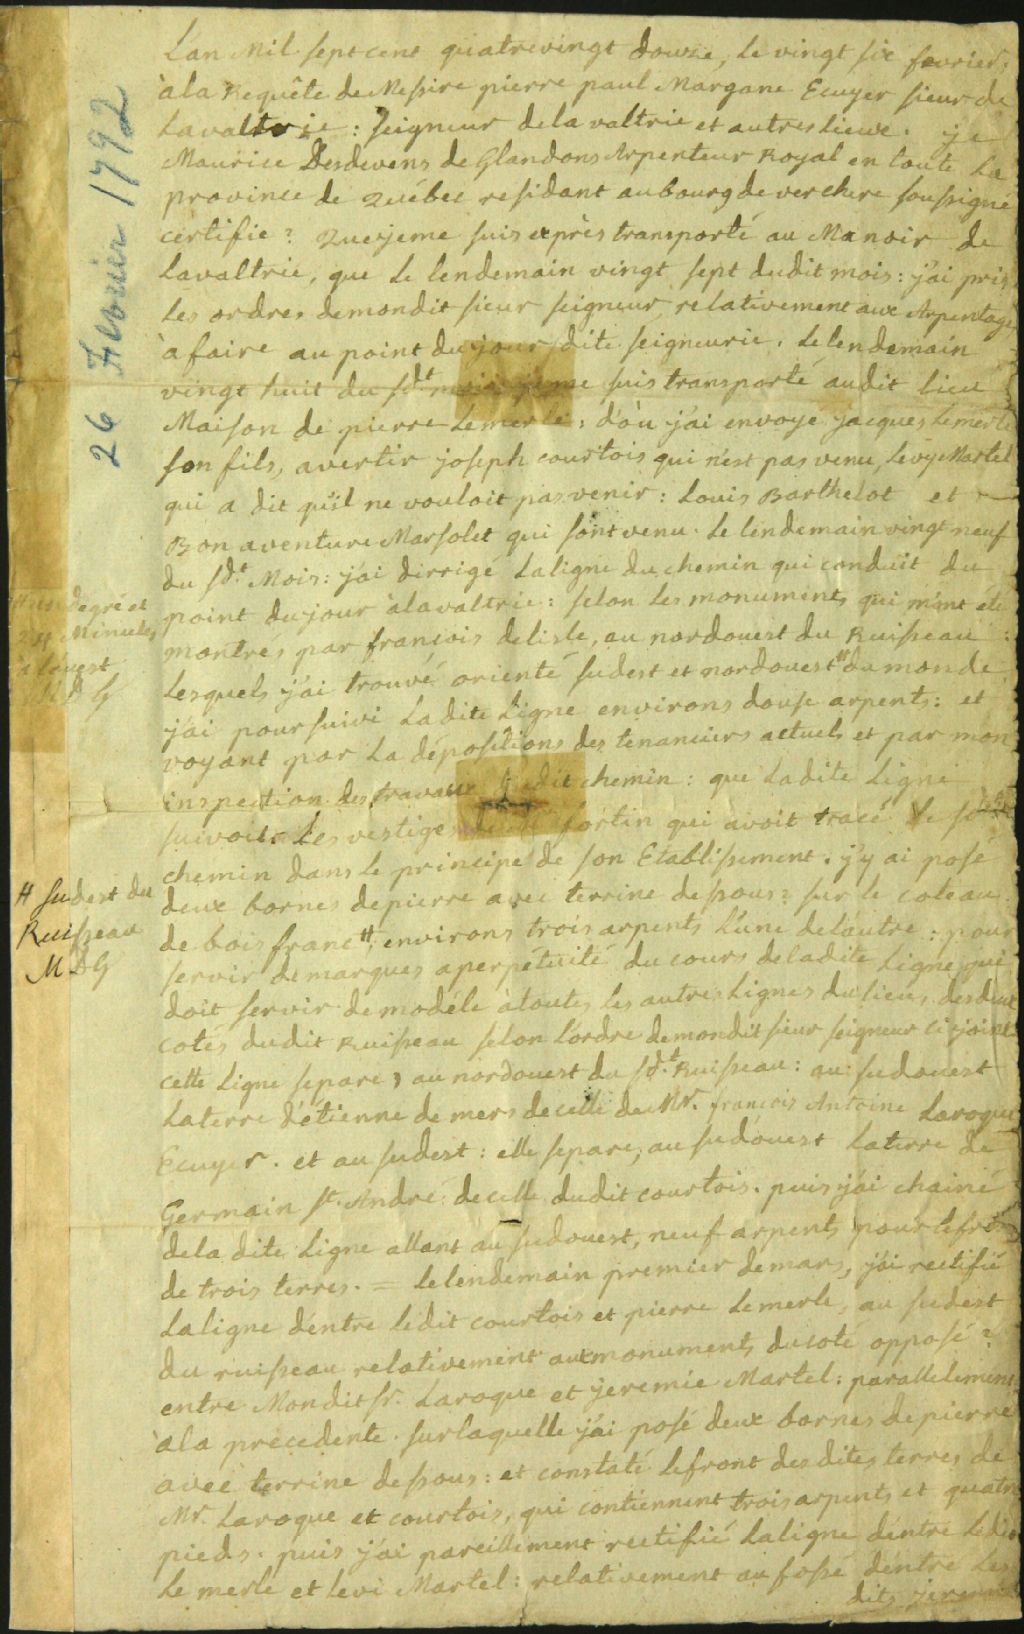 26 Février 1792
L'an Mil sept cent quatrevingt douze, le vingt six fevrier,
à la Requête de Messire pierre paul Margane Ecuyer sieur de
Lavaltrie : seigneur de la valtrie et autres lieux. je
Maurice Desdevens de Glandons Arpenteur Royal en toute la
province de Québec residant au bourg de verchere soussigné
certifie : Que je me suis exprès transporté au Manoir de
Lavaltrie, que le lendemain vingt sept dudit mois : j'ai pris
les ordres de mondit sieur seigneur, relativement aux Arpentages
à faire au point du jour dite seigneurie. Le lendemain
vingt huit du sdt. mois je me suis transporté audit lieu
Maison de pierre Lemerle : d'où j'ai envoyé jacques Lemerle
son fils, avertir joseph courtois qui n'est pas venu, Levy Martel
qui a dit qu'il ne vouloit pas venir : Louis Barthelot et
Bonaventure Marsolet qui sont venu. Le lendemain vingt neuf
du sdt. Mois : j'ai dirrigé la ligne du chemin qui conduit du
point du jour à lavaltrie : selon les monuments qui m'ont été
montrés par françois delisle, au nordouest du Ruisseau :
Lesquels j'ai trouvé orienté sudest et nordouest # du monde
# degré et
24 Minutes
à l'ouest
M D G
j'ai poursuivi la dite Ligne environs douse arpents : et
voyant par la dépositions des tenanciers actuels et par mon
inspection des travaux dudit chemin : que la dite Ligne
suivoit les vestiges fortin qui avoit tracé le
chemin dans le principe de son Etablissement. j'y ai posé
deux bornes de pierre avec terrine dessous : sur le coteau
de bois franc #, environs trois arpents l'une de l'autre : pour
# sudest du
Ruisseau
M DG
servir de marques a perpétuité du cours de ladite Ligne qui
doit servir de modéle à toutes les autres Lignes du lieu, des deux
cotés dudit Ruisseau selon l'ordre de mondit sieur seigneur ci joint
cette Ligne separe, au nordouest du sdt. Ruisseau : au sudouest
la terre d'étienne demers de celle de Mr. françois Antoine Laroque
Ecuyer. et au sudest : elle separe, au sudouest la terre de
Germain st. André de celle dudit courtois. puis j'ai chainé
de la dite Ligne allant au sudouest, neuf arpents pour le front
de trois terres. = le lendemain premier de mars, j'ai rectifié
la ligne d'entre ledit courtois et pierre Lemerle, au sudest
du ruisseau relativement aux monuments du coté opposé :
entre Mondit sr. Laroque et jeremie Martel : parallelement
à la precedente. sur laquelle j'ai posé deux bornes de pierre
avec terrine dessous : et constaté le front des dites terres de
Mr. Laroque et courtois, qui contiennent trois arpents et quatre
pieds. puis j'ai pareillement rectifié la ligne d'entre ledit
Le merle et Levi Martel : relativement au fossé d'entre les
dits jeremie